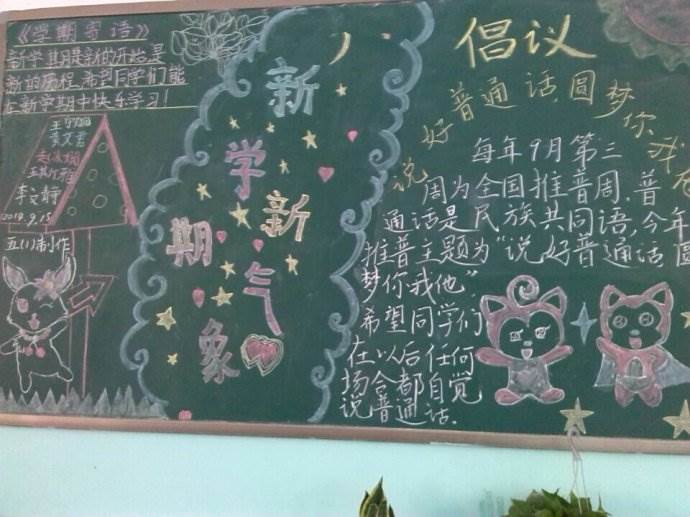 《学期寄语》
新学期是新的开始是
新的历程,希望同学们能
在新学期中快乐学习！
李文静
2014.9.15
五(1)制作
新学期
新气象
倡议
说好普通话,圆梦你我
每年9月第三
周为全国推普周.普
通话是民族共同语,今年
推普主题为"说好普通话,圆
梦你我他".
希望同学们
在以后任何
场合都自觉
说普通话.